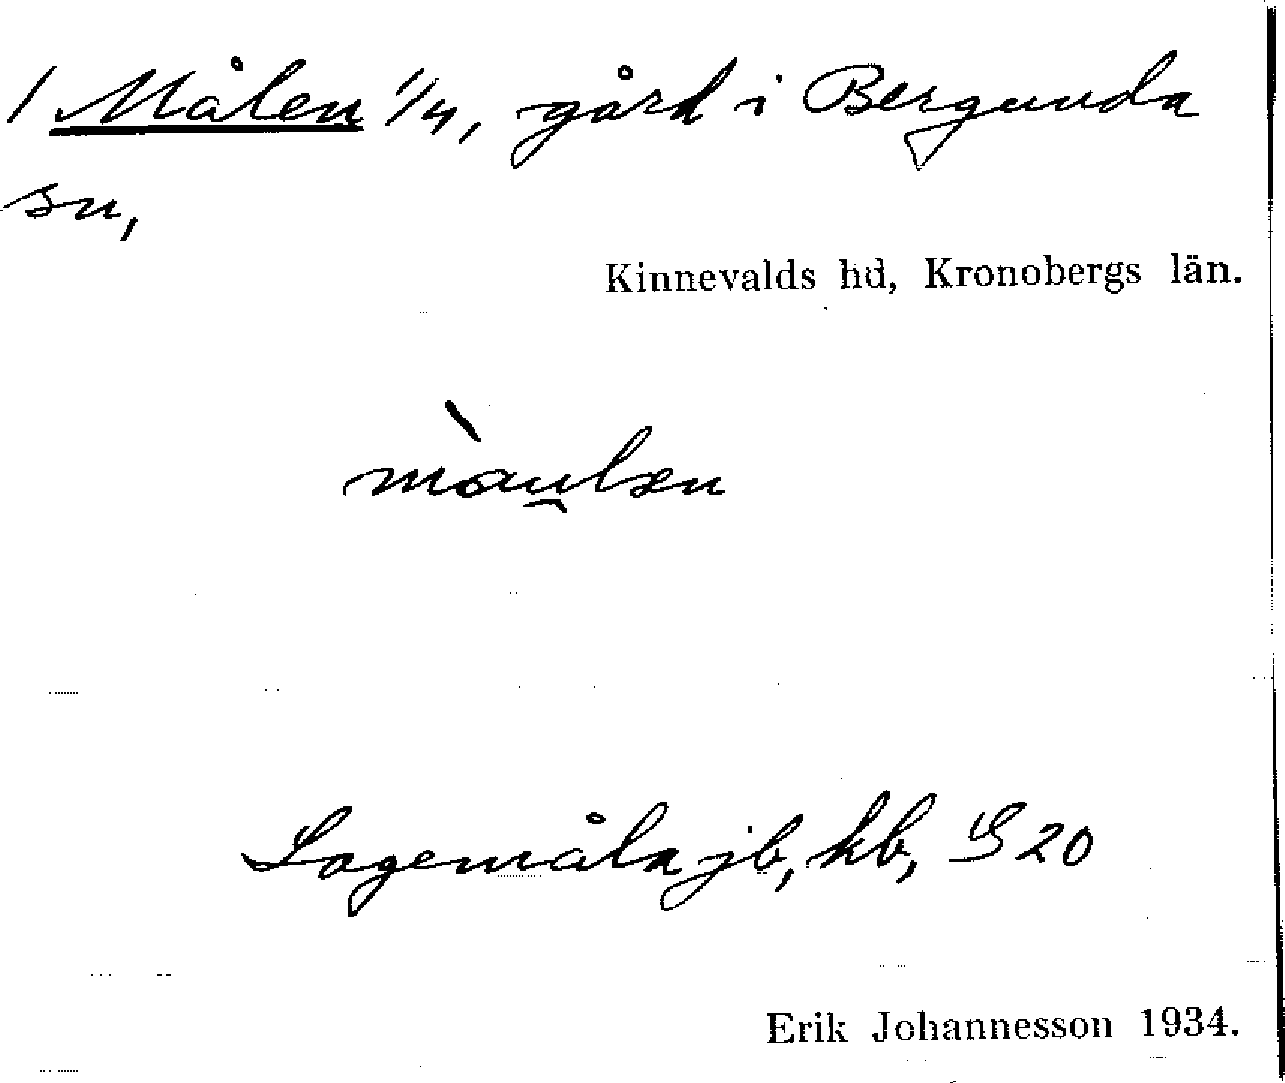 / Målen 1/4, gård i Bergunda
sn,
Kinnevalds hd, Kronobergs län.
màu̯lsn
Lagemåla jb, kb, GS 20
Erik Johannesson 1934.